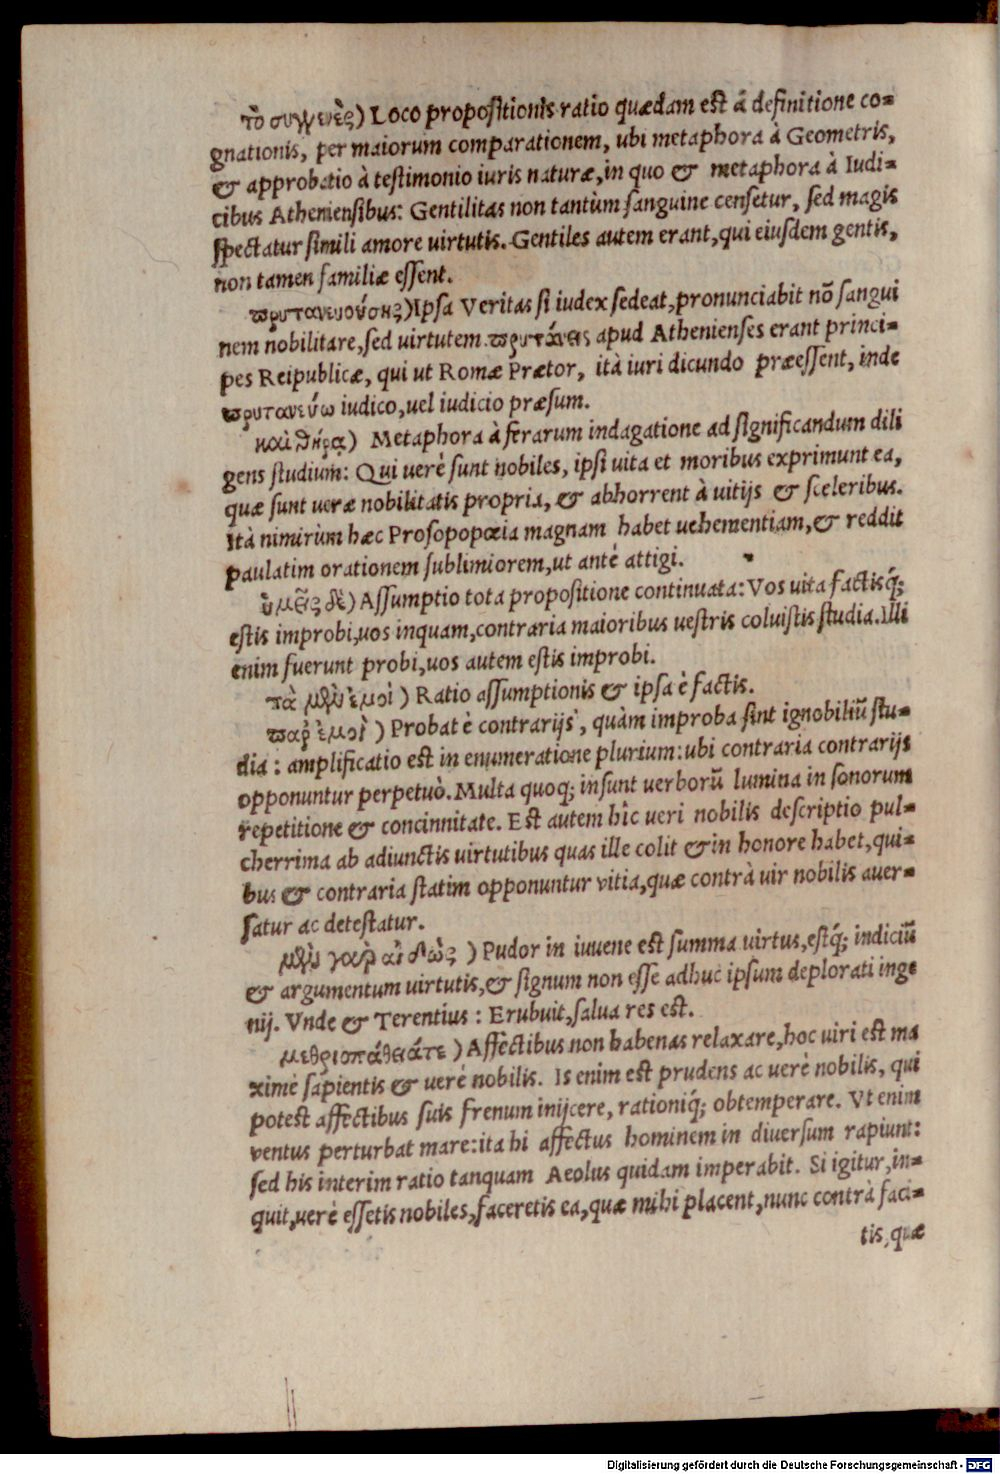 τὸ συγγενὲς) Loco propoſitionis ratio quædam est ã definitione co-
gnationis, per maiorum comparationem, ubi metaphora à Geometris,
& approbatio à testimonio iuris naturæ, in quo & metaphora à Iudi-
cibus Atheniensibus: Gentilitas non tantùm ſanguine cenſetur, ſed magis
ſpectatur ſimili amore uirtutis. Gentiles autem erant, qui eiuſdem gentis,
non tamen familiæ eſſent.
πρυτανευούσης) Ipſa Veritas ſi iudex ſedeat, pronunciabit nõ ſangui
nem nobilitare, ſed uirtutem. πρυτάνεις apud Athenienſes erant princi-
pes Reipublicæ, qui ut Romæ Prætor, ità iuri dicundo præeſſent, inde
πρυτανεύω iudico, uel iudicio præſum.
καὶ θήρᾳ) Metaphora à ferarum indagatione ad ſignificandum dili
gens ſtudium: Qui uerè ſunt nobiles, ipſi uita et moribus exprimunt ea,
quæ ſunt ueræ nobilitatis propria, & abhorrent à uitijs & ſceleribus.
ità nimirùm hæc Proſopopœia magnam habet uehementiam, & reddit
paulatim orationem ſublimiorem, ut antè attigi.
ὑμεῖς δὲ) Aſſumptio tota propoſitione continuata: Vos uita factisq́;
eſtis improbi, uos inquam, contraria maioribus ueſtris coluiſtis ſtudia. Illi
enim fuerunt probi, uos autem eſtis improbi.
τὰ μὲν ἐμοὶ) Ratio aſſumptionis & ipſa è factis.
παρ' ἐμοὶ) Probat è contrarijs, quàm improba ſint ignobiliũ ſtu-
dia: amplificatio est in enumeratione plurium: ubi contraria contrarijs
opponuntur perpetuò. Multa quoq; inſunt uerborũ lumina in ſonorum
repetitione & concinnitate. Est autem hîc ueri nobilis deſcriptio pul-
cherrima ab adiunctis uirtutibus quas ille colit & in honore habet, qui-
bus & contraria ſtatim opponuntur vitia, quæ contrà uir nobilis auer-
ſatur ac deteſtatur.
μὲν γὰρ αἰδὼς) Pudor in iuuene est ſumma uirtus, eſtq́; indiciũ
& argumentum uirtutis, & ſignum non eſſe adhuc ipſum deplorati inge
nij. Vnde & Terentius: Erubuit, ſalua res est.
μετριοπάθειάτε) Affectibus non habenas relaxare, hoc uiri est ma
ximè ſapientis & uerè nobilis. Is enim est prudens ac uerè nobilis, qui
potest affectibus ſuis frenum inijcere, rationiq́; obtemperare. Vt enim
ventus perturbat mare: ita hi affectus hominem in diuerſum rapiunt:
ſed his interim ratio tanquam Aeolus quidam imperabit. Si igitur, in-
quit, uerè eſſetis nobiles, faceretis ea, quæ mihi placent, nunc contrà faci-
tis, quæ
Digitalisierung gefördert durch die Deutsche Forschungsgemeinschaft - DFG